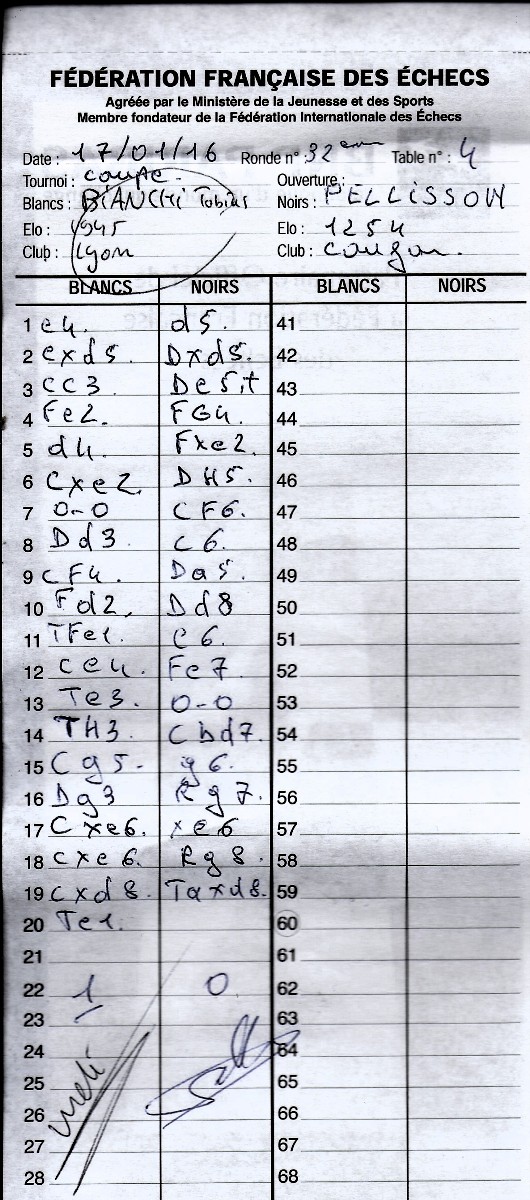 FÉDÉRATION FRANÇAISE DES ÉCHECS
Agréée par le Ministère de la Jeunesse et des Sports
Membre fondateur de la Fédération Internationale des Échecs
Date : 17/01/16 Ronde n° : 32 em Table n° : 4
Tournoi : coupe. Ouverture :
Blancs : BIANCHI Tobias Noirs : PELLISSON
Elo : 1945 Elo : 1254
Club : Lyon Club :
BLANCS NOIRS BLANCS NOIRS
1 e4. d5. 41
2 exd5. Dxd5. 42
3 CC3 De5,t 43
4 Fe2. FG4. 44
5 d4. Fxe2. 45
6 Cxe2. DH5. 46
7 0-0 CF6. 47
8 Dd3. C6. 48
9 CF4. Da5. 49
10 Fd2. Dd8 50
11 TFe1. e6. 51
12 Ce4. Fe7. 52
13 Te3. 0-0 53
14 TH3. Cbd7. 54
15 Cg5- g6. 55
16 Dg3 Rg7. 56
17 Cxe6. xe6 57
18 Cxe6. Rg8. 58
19 Cxd8. Taxd8. 59
20 Te1. 60
21 61
22 1 0 62
23 63
24 64
25 65
26 66
27 67
28 68